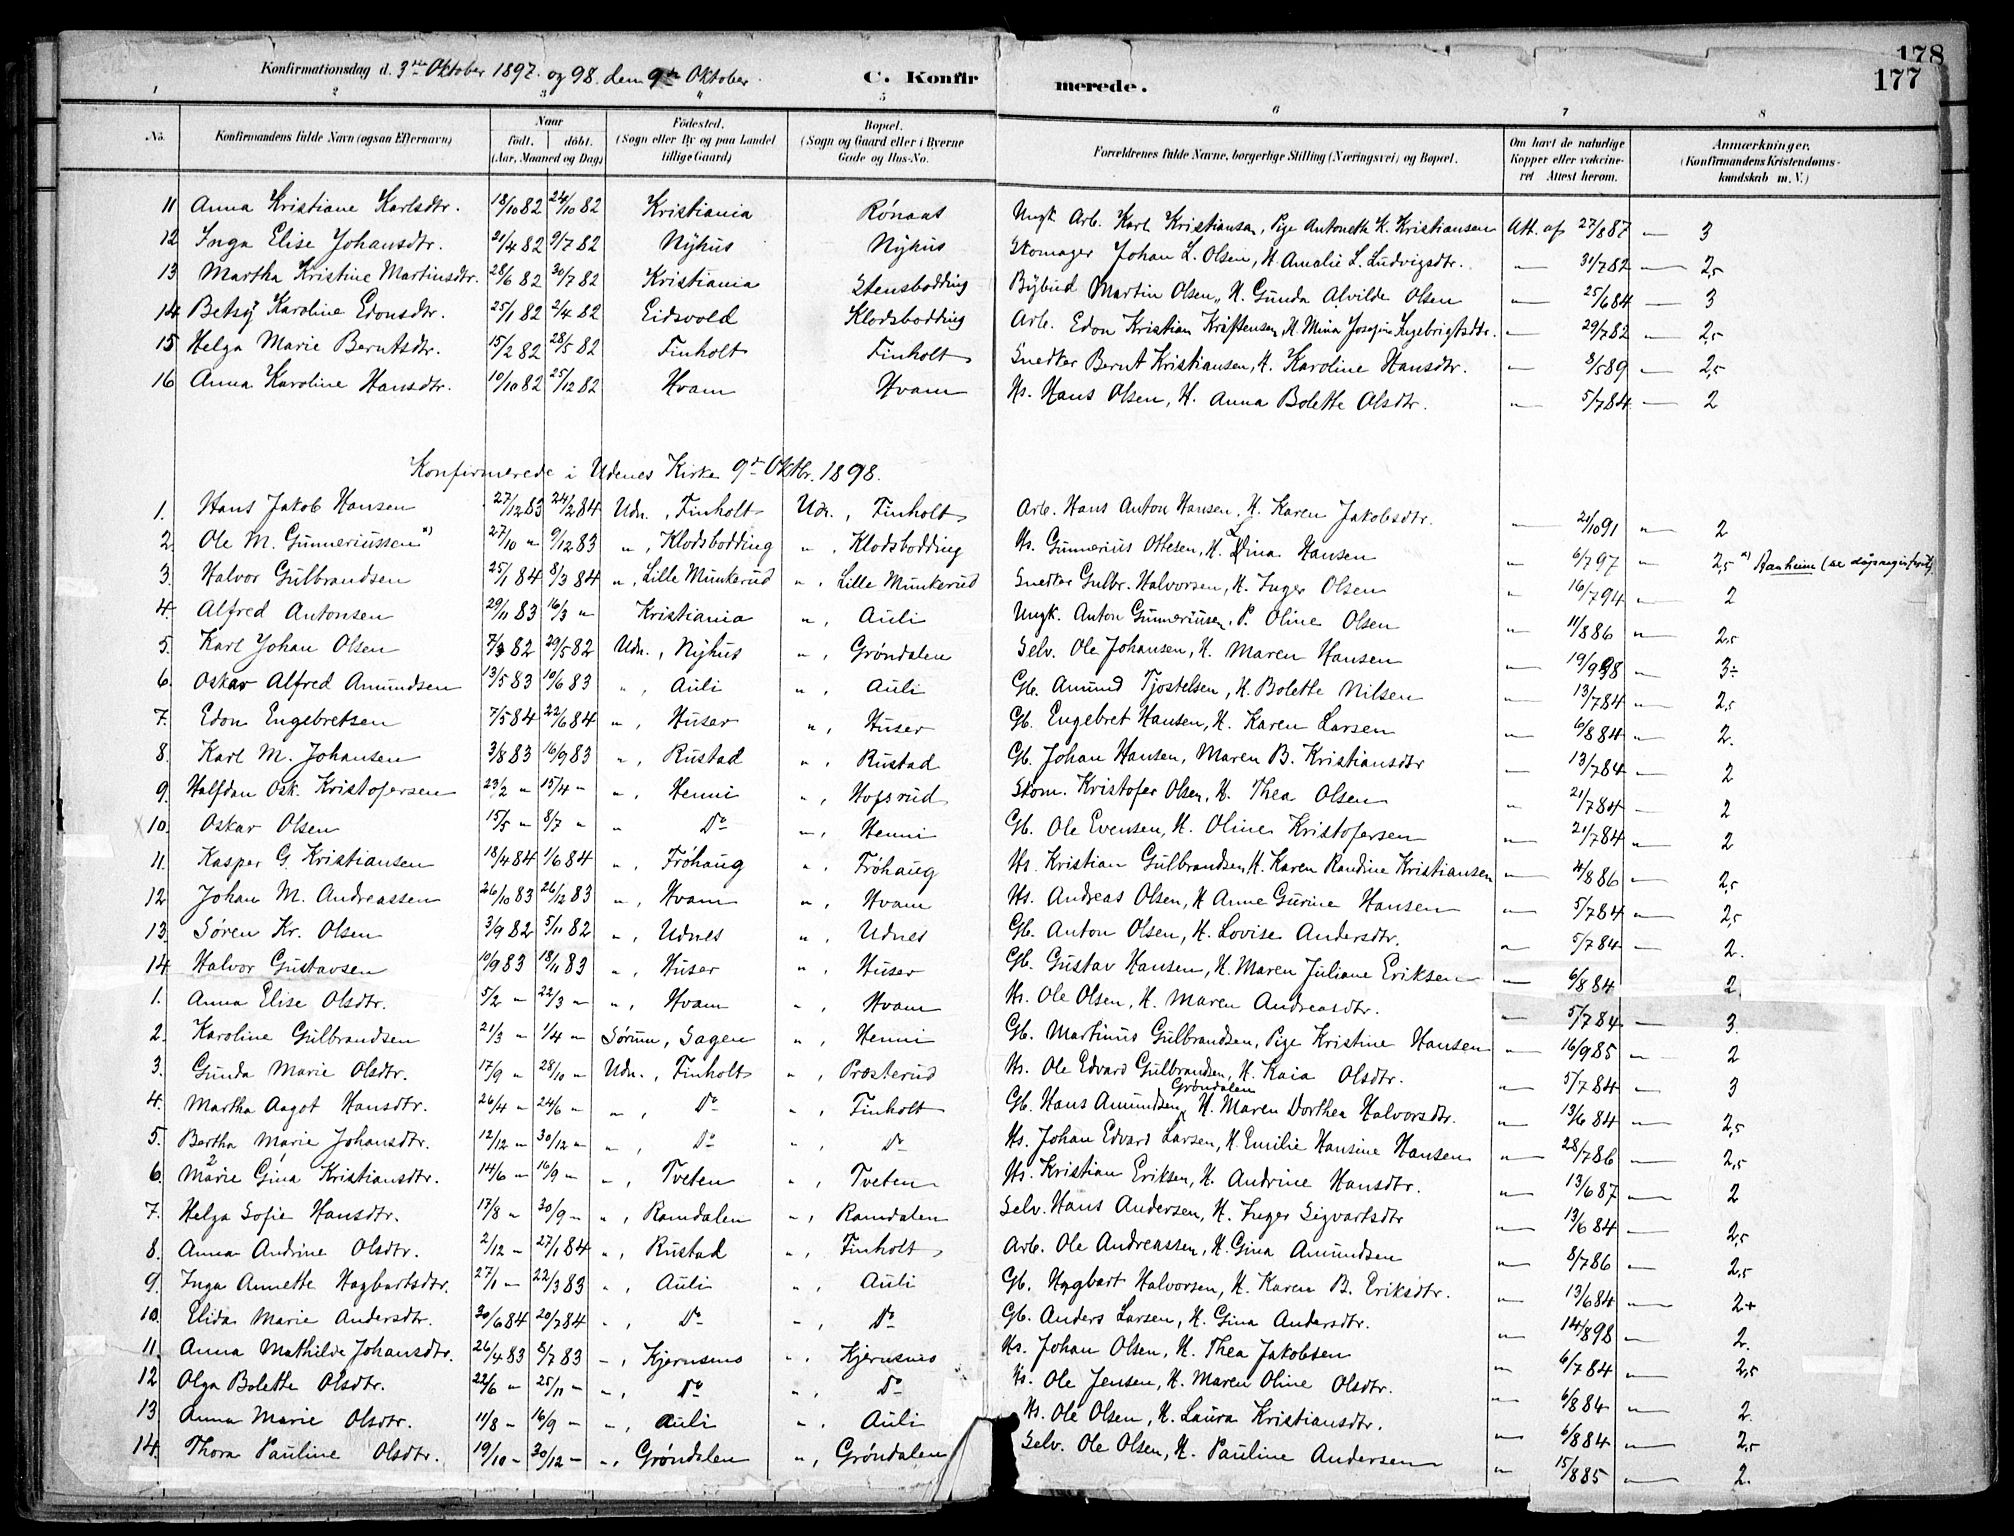 178
177
Konfirmationsdag d. 3die Oktober 1897. og 98. dem 9de Oktober.
C. Konfirmerede.
1 2 3 4 5 6 7 8
No. Konfirmandens fulde Navn (ogsaa Efternavn) Naar født. døbt. (Aar, Maaned og Dag) Fødested. (Sogn eller By og paa Landet tillige Gaard) Bopæl. (Sogn og Gaard eller i Byerne Gade og Hus-No. Forældrenes fulde Navne, borgerlige Stilling (Næringsvei) og Bopæl. Om havt de naturlige Kopper eller vakcineret Attest herom. Anmærkninger. (Konfirmandens Kristendomskundskab m. V.)
11 Anna Kristiane Karlsdtr. 18/10 82 24/10 82 Kristiania Rónaas Ungk. Arb. Karl Kristiansen, Pige Antoneth K. Kristiansen Att. af 27/8 87 — 3
12 Inga Elise Johansdtr. 21/4 82 9/7 82 Nÿhus Nÿhus Skomager Johan L. Olsen, H. Amalie L. Ludvigsdtr. " 31/7 82 — 2,5
13 Martha Kristine Martinsdtr. 28/6 82 30/7 82 Kristiania Stensbodding Bÿbud Martin Olsen, H. Gunda Alvilde Olsen " 25/6 84 — 3
14 Betsÿ Karoline Edonsdtr. 25/1 82 2/4 82 Eidsvold Klodsbodding Arb. Edon Kristian Kristensen, H. Mina Josefine Ingebrigtsdtr. " 29/7 82 — 2,5
15 Helga Marie Berntsdtr. 15/2 82 28/5 82 Finholt Finholt Snedker Bernt Kristiansen, H. Karoline Hansdtr. " 8/5 89 — 2,5
16 Anna Karoline Hansdtr. 10/10 82 25/12 82 Hvam Hvam Hs. Hans Olsen, H. Anna Bolette Olsdtr. " 5/7 84 — 2
Konfirmerede i Udenes Kirke 9de Oktbr. 1898.
1. Hans Jakob Hansen 27/12 83 24/2 84 Udn., Finholt Udn., Finholt Arb. Hans Anton Hansen, H. Karen Jakobsdtr. " 21/10 91 " 2
2. Ole M. Gunneriussen *) 27/10 " 9/12 83 ", Klodsbodding ", Klodsbodding Hs. Gunnerius Ottesen, H. Dina Hansen " 6/7 97 " 2,5 *) Aanheim (se dåpsregisteret)
3. Halvor Gulbrandsen 25/1 84 8/3 84 ", Lille Munkerud ", Lille Munkerud Snedker Gulbr. Halvorsen, H. Inger Olsen " 16/7 94 " 2
4. Alfred Antonsen 29/11 83 16/3 " Kristiania ", Auli Ungk. Anton Gunneriusen, P. Oline Olsen " 11/8 86 " 2,5
5. Karl Johan Olsen 7/3 82 29/5 82 Udn., Nÿhus ", Gróndalen Selv. Ole Johansen, H. Maren Hansen " 19/9 98 " 3÷
6. Oskar Alfred Amundsen 13/5 83 10/6 83 ", Auli ", Auli Gb. Amund Tjostelsen, H. Bolette Nilsen " 13/7 84 " 2,5
7. Edon Engebretsen 7/5 84 22/6 84 ", Huser ", Huser Gb. Engebret Hansen, H. Karen Larsen " 6/8 84 " 2.
8. Karl M. Johansen 3/8 83 16/9 83 ", Rustad ", Rustad Gb. Johan Hansen, Maren B. Kristiansdtr " 13/7 84 — 2
9. Halfdan Osk. Kristofersen 23/2 " 15/4 " ", Henni ", Hofsrud Skom. Kristofer Olsen, H. Thea Olsen " 21/7 84 — 2
10. Oskar Olsen 15/5 " 8/7 " " Do ", Henni Gb. Ole Evensen, H. Oline Kristofersen " 21/7 84 " 2
11. Kasper G. Kristiansen 18/4 84 1/6 84 ", Fróhaug ", Fróhaug Hs. Kristian Gulbrandsen, H. Karen Randine Kristiansen " 4/8 86 — 2,5
12 Johan M. Andreassen 26/10 83 26/12 83 ", Hvam ", Hvam Hs. Andreas Olsen, H Anne Gurine Hansen " 5/7 84 — 2,5
13. Sóren Kr. Olsen 3/9 82 5/11 82 ", Udnes ", Udnes Gb. Anton Olsen, H. Lovise Andersdtr. " 5/7 84 — 2.
14 Halvor Gustavsen 10/9 83 18/11 83 ", Huser ", Huser Gb. Gustav Hansen, H. Maren Juliane Eriksen " 6/8 84 2
1. Anna Elise Olsdtr. 5/2 " 22/3 " ", Hvam ", Hvam Hs. Ole Olsen, H. Maren Andreasdtr. " 5/7 84 — 3.
2. Karoline Gulbrandsen 21/3 " 1/4 " Sórum, Sagen ", Henni Gb. Martinus Gulbrandsen, Pige Kristine Hansen " 16/9 85 " 2
3. Gunda Marie Olsdtr. 17/9 " 28/10 " Udn., Finholt ", Præsterud Hs. Ole Edvard Gulbrandsen, H. Kaia Olsdtr. " 5/7 84 — 3
4. Martha Aagot Hansdtr. 26/4 " 24/6 " ", Do ", Finholt Gb. Hans Amundsen Gróndalen, H. Maren Dorthea Halvorsdtr. " 13/6 84 " 2,5
5. Bertha Marie Johansdtr. 12/12 " 30/12 " ", Do ", Do Hs. Johan Edvard Larsen, H. Emilie Hansine Hansen " 28/7 86 — 2,5
6. Marie 2 Gina 1 Kristiansdtr. 14/6 " 16/9 " ", Tveten ", Tveten Hs. Kristian Eriksen, H. Andrine Hansdtr. " 13/6 87 — 2
7. Helga Sofie Hansdtr. 17/8 " 30/9 " ", Ramdalen ", Ramdalen Selv. Hans Andersen, H. Inger Sigvartsdtr " 13/6 84 — 2,5
8. Anna Andrine Olsdtr. 2/12 " 27/1 84 ", Rustad ", Finholt Arb. Ole Andreassen, H. Gina Amundsen " 8/7 86 — 2,5
9. Inga Annette Hagbartsdtr. 27/1 " 22/3 83 ", Auli ", Auli Gb. Hagbart Halvorsen, H. Karen B. Eriksdtr. " 13/6 84 — 2+
10. Elida Marie Andersdtr. 30/6 84 20/7 84 ", Do ", Do Gb. Anders Larsen, H. Gina Andersdtr. " 14/8 98 — 2.
11. Anna Mathilde Johansdtr. 26/4 83 8/7 83 ", Kjernsmo ", Kjernsmo Hs. Johan Olsen, H. Thea Jakobsen " 6/7 84 — 2,5
12 Olga Bolette Olsdtr. 22/6 " 25/11 " ", Do ", Do Hs. Ole Jensen, H. Maren Oline Olsdtr. " 6/8 84 — 2.
13 Anna Marie Olsdtr. 11/8 " 16/9 " ", Auli ", Auli Hs. Ole Olsen, H. Laura Kristiansdtr. " 6/8 84 — 2,5
14. Thora Pauline Olsdtr. 19/10 " 30/12 " ", Gróndalen ", Gróndalen Selv. Ole Olsen, H. Pauline Andersen " 15/8 85 — 2.